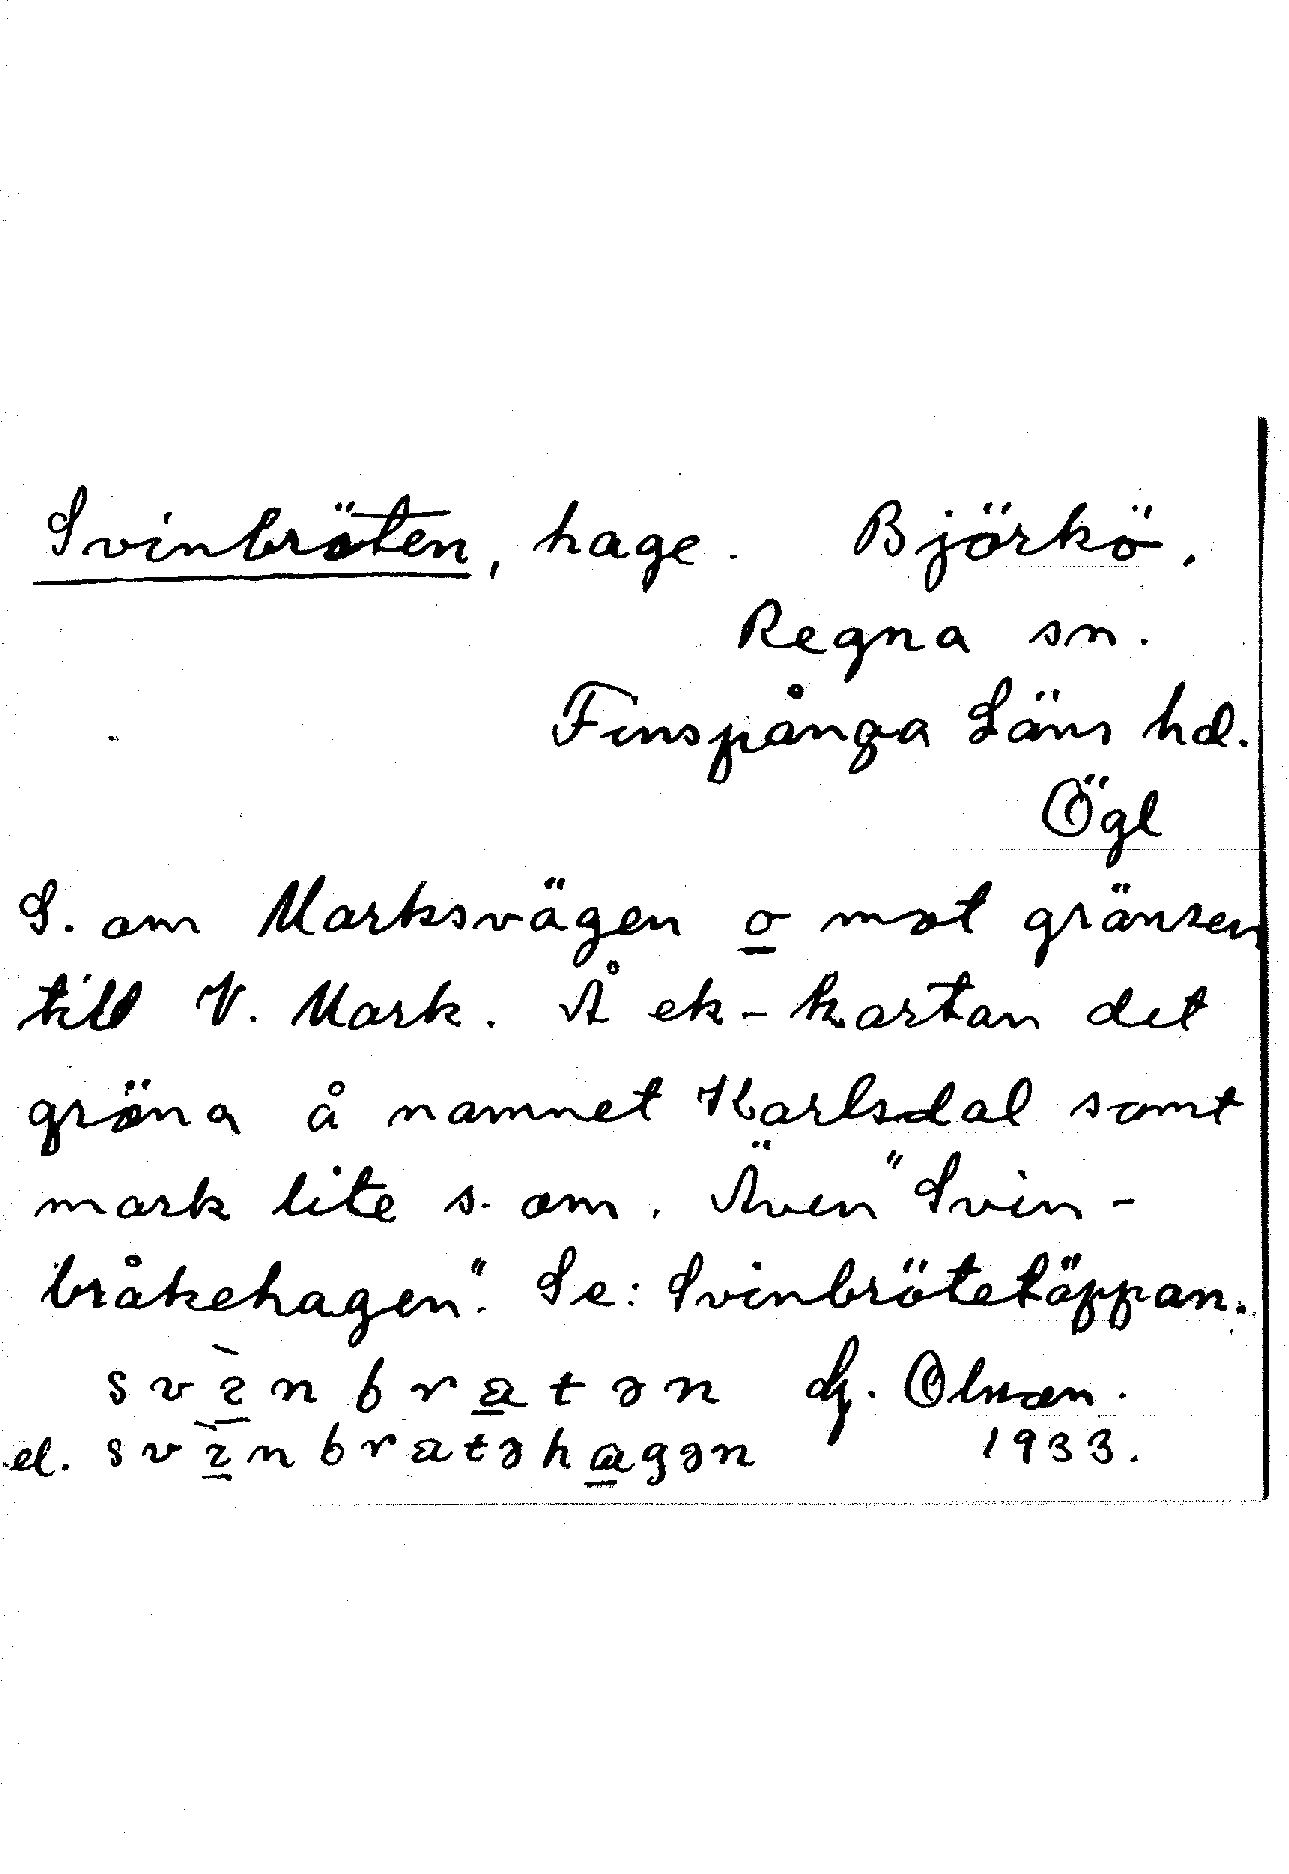 Svinbröten, hage. Björkö.
Regna sn.
Finspånga Läns hd.
Ögl
S. om Marksvägen o mot gränsen
till V. Mark. Å ek-kartan det
gröna å namnet Karlsdal samt
mark lite s. om. Även "Svin-
bråkehagen". Se: Svinbrötetäppan.
svìnbratən G. Olsson.
el. svìnbratəhagən 1933.